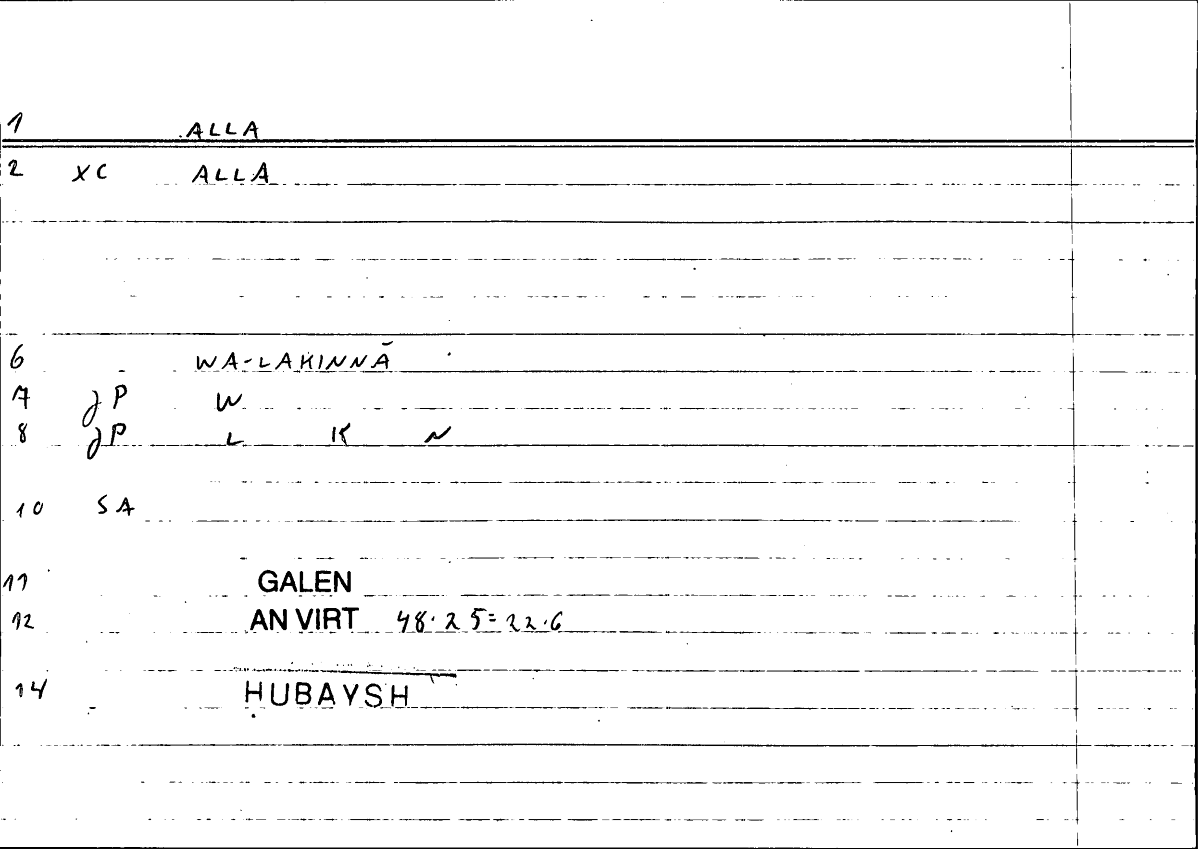 1 ALLA
2 XC ALLA
6 WA-LAKINNĀ
7 JP W
8 JP L K N
10 SA
11 GALEN
12 AN VIRT 48.25=22.6
14 ḤUBAYSH